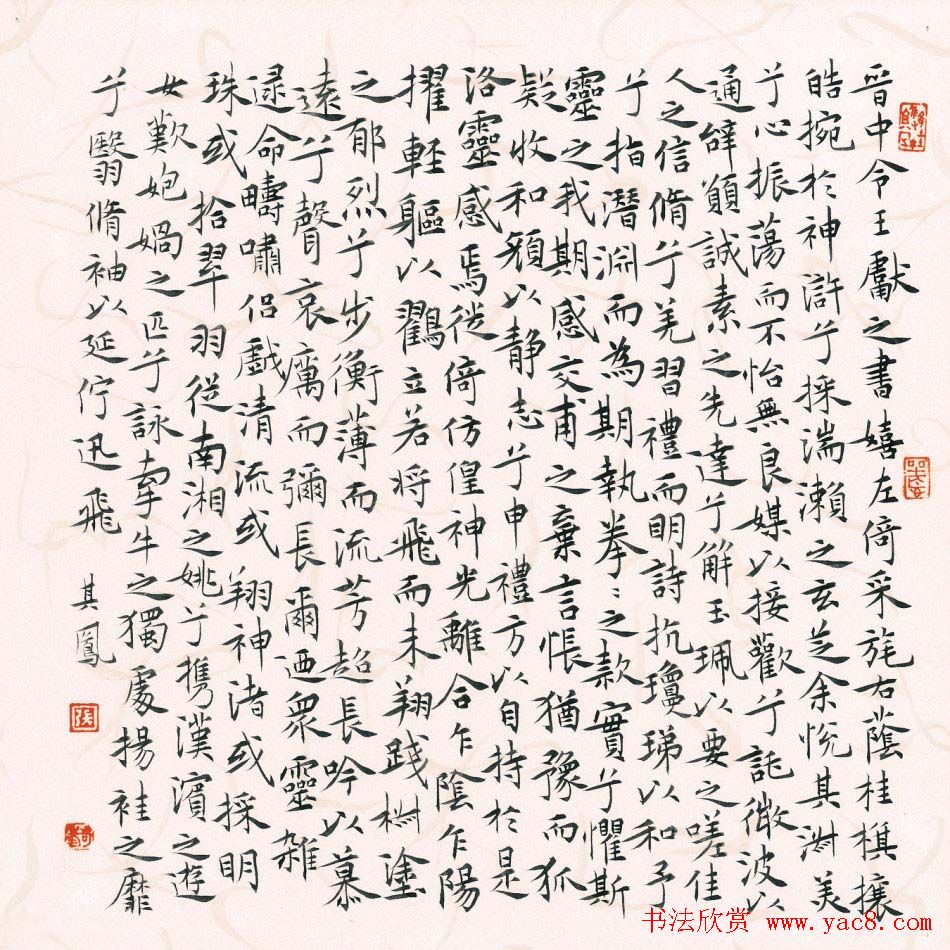 晋中令王獻之書嬉左倚采旄右蔭桂棋攘
皓捥於神滸兮採湍瀨之玄芝余悦其淋美
兮心振蕩而不怡無良媒以接歡兮託微波以
通辝願誠素之先達兮解玉珮以要之嗟佳
人之信脩兮羌習禮而明詩抗瓊珶以和予
兮指潛淵而為期執拳〻之款實兮懼斯
靈之我期感交甫之棄言悵猶豫而狐
疑收和顔以静志兮申禮方以自持於是
洛靈感焉徙倚仿偟神光離合乍陰乍陽
擢輕軀以鸖立若将飛而未翔踐椒塗
之郁烈兮步衡薄而流芳超長吟以慕
遠兮聲哀厲而彌長爾迺眾靈雜
遝命疇嘯侣戲清流或翔神渚或採明
珠或拾翠羽從南湘之姚兮攜漢濱之遊
女歎姽媧之匹兮詠牽牛之獨處揚袿之靡
兮翳脩袖以延佇迅飛
其鳳
張
书法欣赏 www.yac8.com